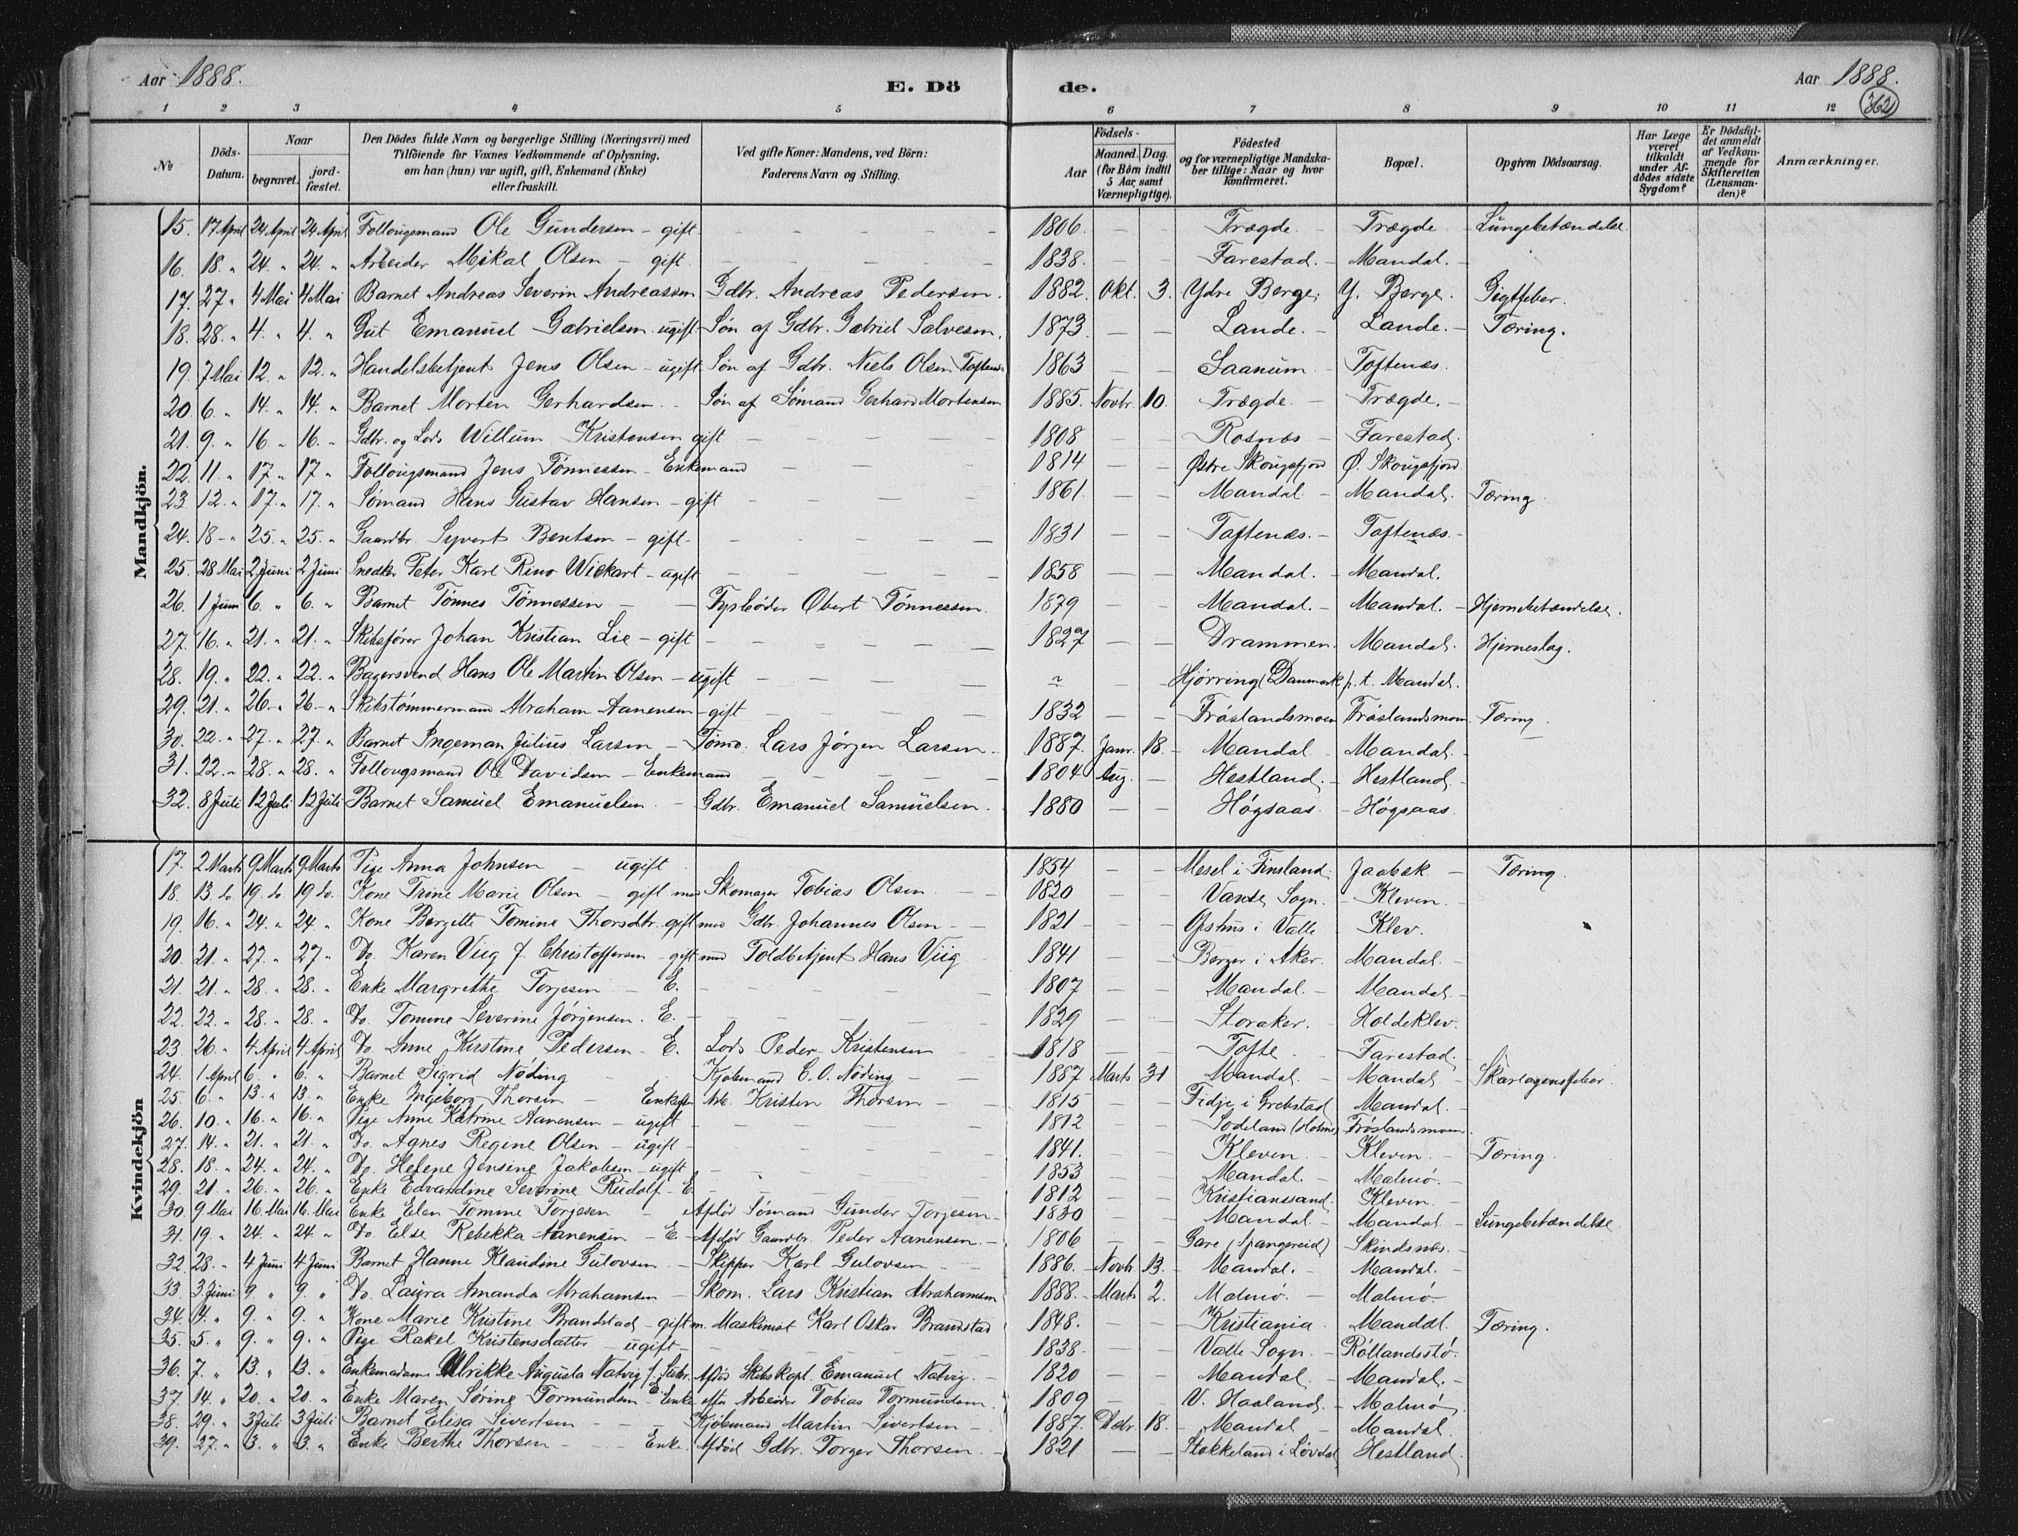 Aar 1888.
E. Dö de.
Aar 1888.
362
1 2 3 4 5 6 7 8 9 10 11 12
№ Döds-Datum. Naar begravet. jord-fæstet. Den Dödes fulde Navn og borgerlige Stilling (Næringsvei) med Tilföiende for Voxnes Vedkommende af Oplysning, om han (hun) var ugift, gift, Enkemand (Enke) eller fraskilt. Ved gifte Koner: Mandens, ved Börn: Faderens Navn og Stilling. Födsels- Aar Maaned. Dag. (for Börn indtil 5 Aar samt Værnepligtige). Födested og for værnepligtige Mandskaber tillige: Naar og hvor konfirmeret. Bopæl. Opgiven Dödsaarsag. Har Læge været tilkaldt under Afdödes sidste Sygdom? Er Dödsfaldet anmeldt af Vedkommende for Skifteretten (Lensmanden)? Anmærkninger.
Mandkjön.
15. 17 April 24 April 24 April Follougsmand Ole Gundersen - gift - 1806 - - Trægde - Trægde - Lungebetændelse.
16. 18. " 24. " 24. " Arbeider Mikal Olsen - gift - 1838. - - Farestad. - Mandal. -
17. 27 " 4 Mai 4 Mai Barnet Andreas Severin Andreassen Gdbr. Andreas Pedersen. 1882. Okt. 3. Ydre Berge. Y. Berge. Gigtfeber.
18. 28. " 4. " 4. " Gut Emanuel Gabrielsen - ugift Søn af Gdbr. Gabriel Salvesen. 1873 - - Lande. - Lande. - Tæring.
19. 7 Mai 12. " 12. " Handelsbetjent Jens Olsen - ugift Søn af Gdbr. Niels Olsen Toftenæs 1863 - - Saanum - Toftenæs. -
20. 6 " 14. " 14. " Barnet Morten Gerhardsen - Søn af Sømand Gerhard Mortensen 1885. Novbr. 10. Trægde - Trægde. -
21. 9. " 16 " 16. " Gdbr. og Lods Willum Kristensen gift - 1808 - - Rosnæs - Farestad.
22. 11. " 17 " 17 " Follougsmand Jens Tønnessen - Enkemand - 1814 - - Østre Skougsfjord Ø. Skougsfjord
23 12. " 17. " 17. " Sømand Hans Gustav Hansen - gift - 1861. - - Mandal - Mandal. Tæring.
24. 18 - " 25. " 25. " Gaardbr. Syvert Bentsen - gift - 1831 - - Toftenæs. - Toftenæs. -
25. 28 Mai 2 Juni 2 Juni Snedker Peter Karl Rino Wickart - ugift - 1858 - - Mandal. - Mandal.
26. 1 Juni 6. " 6. " Barnet Tønnes Tønnessen - Fyrbøder Obert Tønnessen. 1879 - - Mandal. - Mandal. - Hjernebetændelse.
27. 16. " 21. " 21. " Skibsfører Johan Kristian Lie - gift - 1827 - - Drammen. Mandal. Hjerneslag.
28. 19. " 22. " 22. " Bagersvend Hans Ole Martin Olsen - ugift - Hjørring (Danmark p. t. Mandal.
29. 21. " 26 - " 26 - " Skibstømmermand Abraham Aanensen - gift - 1832 - - Frøslandsmoen Frøslandsmoen Tæring.
30. 22. " 27. " 27. " Barnet Ingeman Julius Larsen - Tømm. Lars Jørgen Larsen. 1887. Janr. 18. - Mandal. - Mandal. -
31. 22. " 28. " 28. " Follougsmand Ole Davidsen - Enkemand - 1804 Aug. - Hestland. - Hestland. -
32. 8 Juli 12 Juli 12 Juli Barnet Samuel Emanuelsen. - Gdbr. Emanuel Samuelsen. 1880 - - Høgsaas - Høgsaas
Kvindekjön
17. 2 Marts 9 Marts 9 Marts Pige Anna Johnsen - ugift. 1854 - - Mesel i Finsland. Jaabæk - Tæring.
18. 13. do. 19. do 19 do. Kone Trine Marie Olsen - gift med Skomager Tobias Olsen 1820 - - Vanse Sogn. - Kleven. -
19. 16. " 24. " 24. " Kone Bergitte Tomine Thorsdtr. gift med Gdbr. Johannes Olsen - 1821 - - i Valle - Klev.
20. 21. " 27. " 27 " Do. Karen Viig f. Christoffersen - gift med Toldbetjent Hans Viig 1841 - - Berger i Aker. Mandal. -
21. 21. " 28. " 28. " Enke Margrethe Torjesen - E. - 1807 - - Mandal. - Mandal. -
22. 22. " 28. " 28. " Do. Tomine Severine Jørgensen. E. - 1829 - - Storaker. - Holdeklev.
23 26. " 4 April 4 April Do. Anne Kirstine Pedersen - E. Lods Peder Kristensen 1818 - - Tofte - Farestad.
24. 1 April 6. " 6. " Barnet Sigrid Nøding - Kjøbmand C. O. Nøding - 1887 Marts 31 - Mandal. - Mandal. - Skarlagensfeber.
25. 6. " 13. " 13. " Enke Ingeborg Thorsen - Enke efter Arb. Kristen Thorsen - 1815 - - Fidje i Grebstad Mandal. -
26. 10. " 16. " 16. " Pige Anne Katrine Aanensen - ugift - 1812 - - Sodeland (Holme) Frøslandsmoen.
27. 14. " 21. " 21. " Do. Agnes Regine Olsen - ugift - 1841. - - Kleven. - Kleven. - Tæring.
28. 18. " 24. " 24. " Do. Helene Jensine Jakobsen - ugift - 1853 - - Mandal. - Malmø. -
29. 21. " 26. " 26. " Enke Edvardine Severine Rudolf - E. 1812 - - Kristianssand. Kleven. -
30. 9 Mai 16 Mai 16 Mai Enke Elen Tomine Torjesen - Afdød Sømand Gunder Torjesen - 1830 - - Mandal. - Mandal - Lungebetændelse.
31. 19. " 24. " 24. " Do. Else Rebekka Aanensen - E - Afdød Gaardbr. Peder Aanensen. - 1806 - - Gare (Spangereid) Skindsnæs. -
32. 28. " 4 Juni 4 Juni Barnet Hanne Klaudine Gulovsen - Skipper Karl Gulovsen - 1886. Novbr. 13. - Mandal. - Mandal. -
33. 3 Juni 9 " 9. " Do. Laura Amanda Abrahamsen - Skom. Lars Kristian Abrahamsen 1888. Marts 2. - Malmø. - Malmø.
34. 4. " 9. " 9. " Kone Marie Kristine Brandstad - gift m. Maskinist Karl Oskar Brandstad 1848. - - Kristiania - Mandal. - Tæring.
35. 5. " 9. " 9. " Pige Rakel Kristensdatter - ugift - 1838. - - Valle Sogn. - Röllandsstø.
36. 7. " 13. " 13. " Enkemadame Ulrikke Augusta Natvig Afdød Skibskapt. Emanuel Natvig. - 1820 - - Mandal. - Mandal. -
37. 14. " 20. " 20. " Enke Maren Sørine Tormundsen - Enke efter Arbeider Tobias Tormundsen. 1809 - - V. Haaland. - Malmø
38. 29. " 3 Juli 3 Juli Barnet Elisa Sivertsen - Kjøbmand Martin Sivertsen - 1887. Decbr. 18. - Mandal - Mandal.
39. 27. " 3. " 3. " Enke Berthe Thorsen - Enke. Afdød Gdbr. Torger Thorsen. - 1821 - - Støkkeland i Løvdal Hestland.